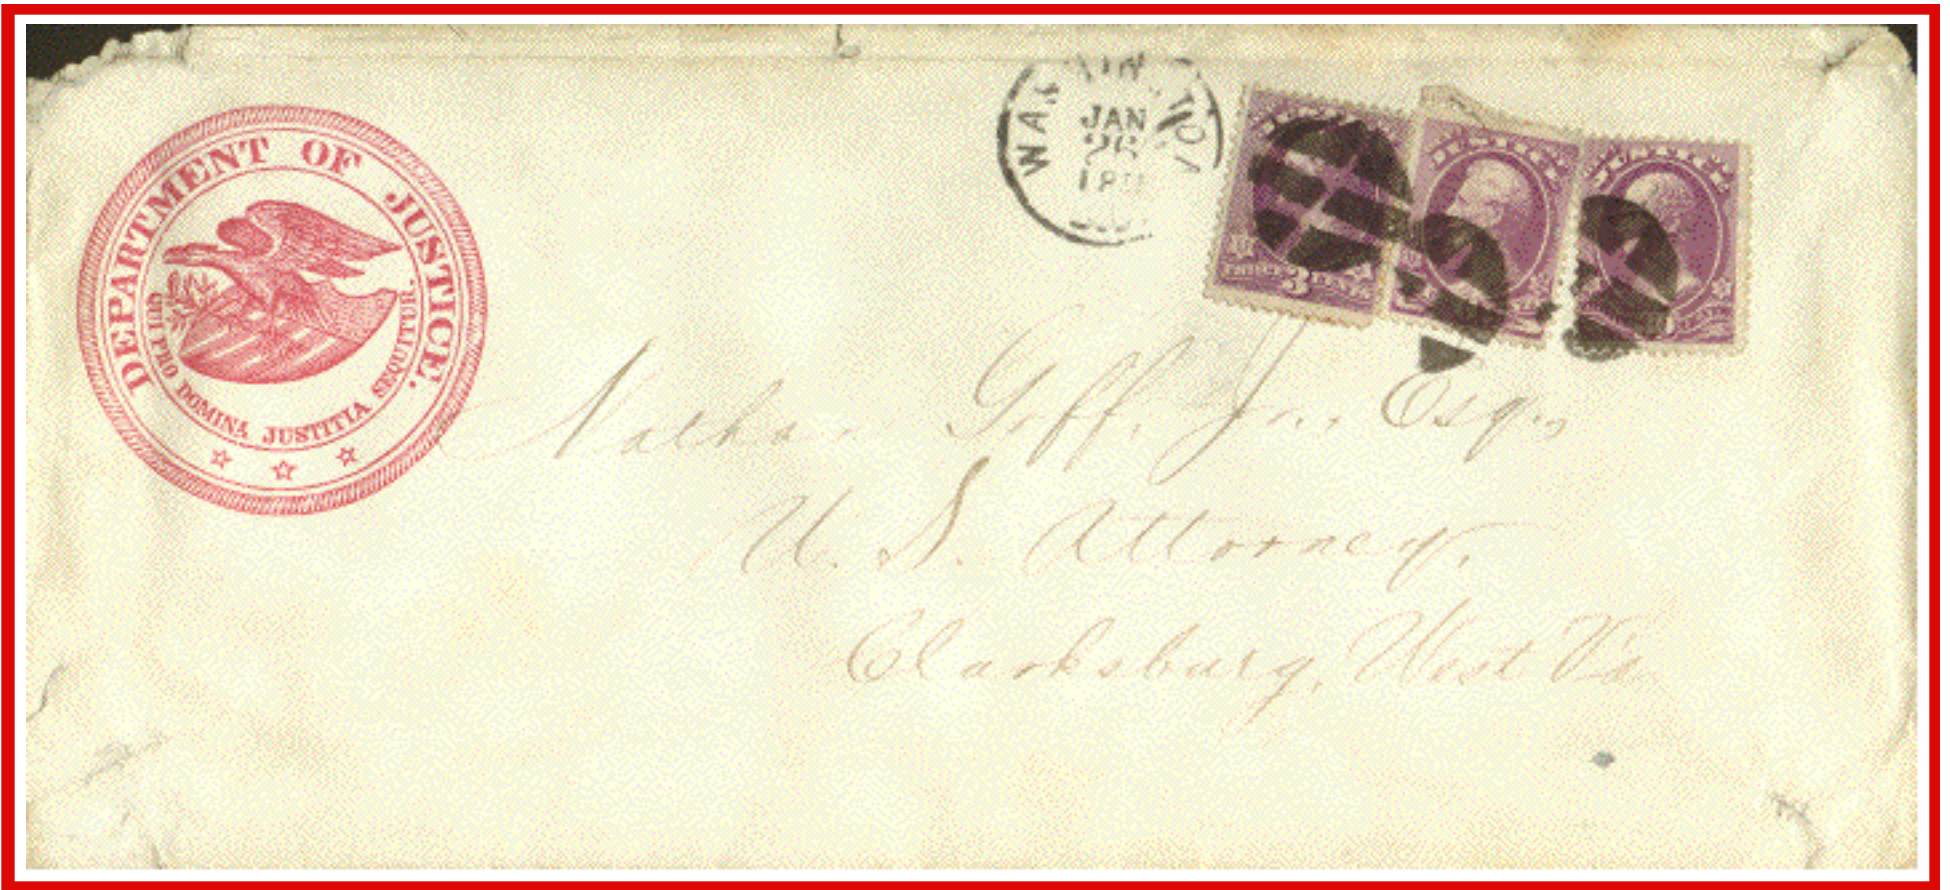 DEPARTMENT OF JUSTICE.
QUI PRO DOMINA JUSTITIA SEQUITUR.
JAN
26
JUSTICE
THREE 3 CENTS
Nathan Goff, Jr., Esq.,
U. S. Attorney,
Clarksburg, West Va.